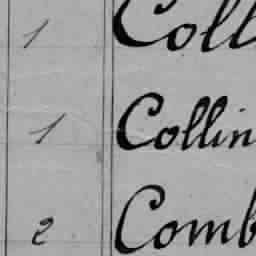 1 Coll
1 Collin
2 Comb